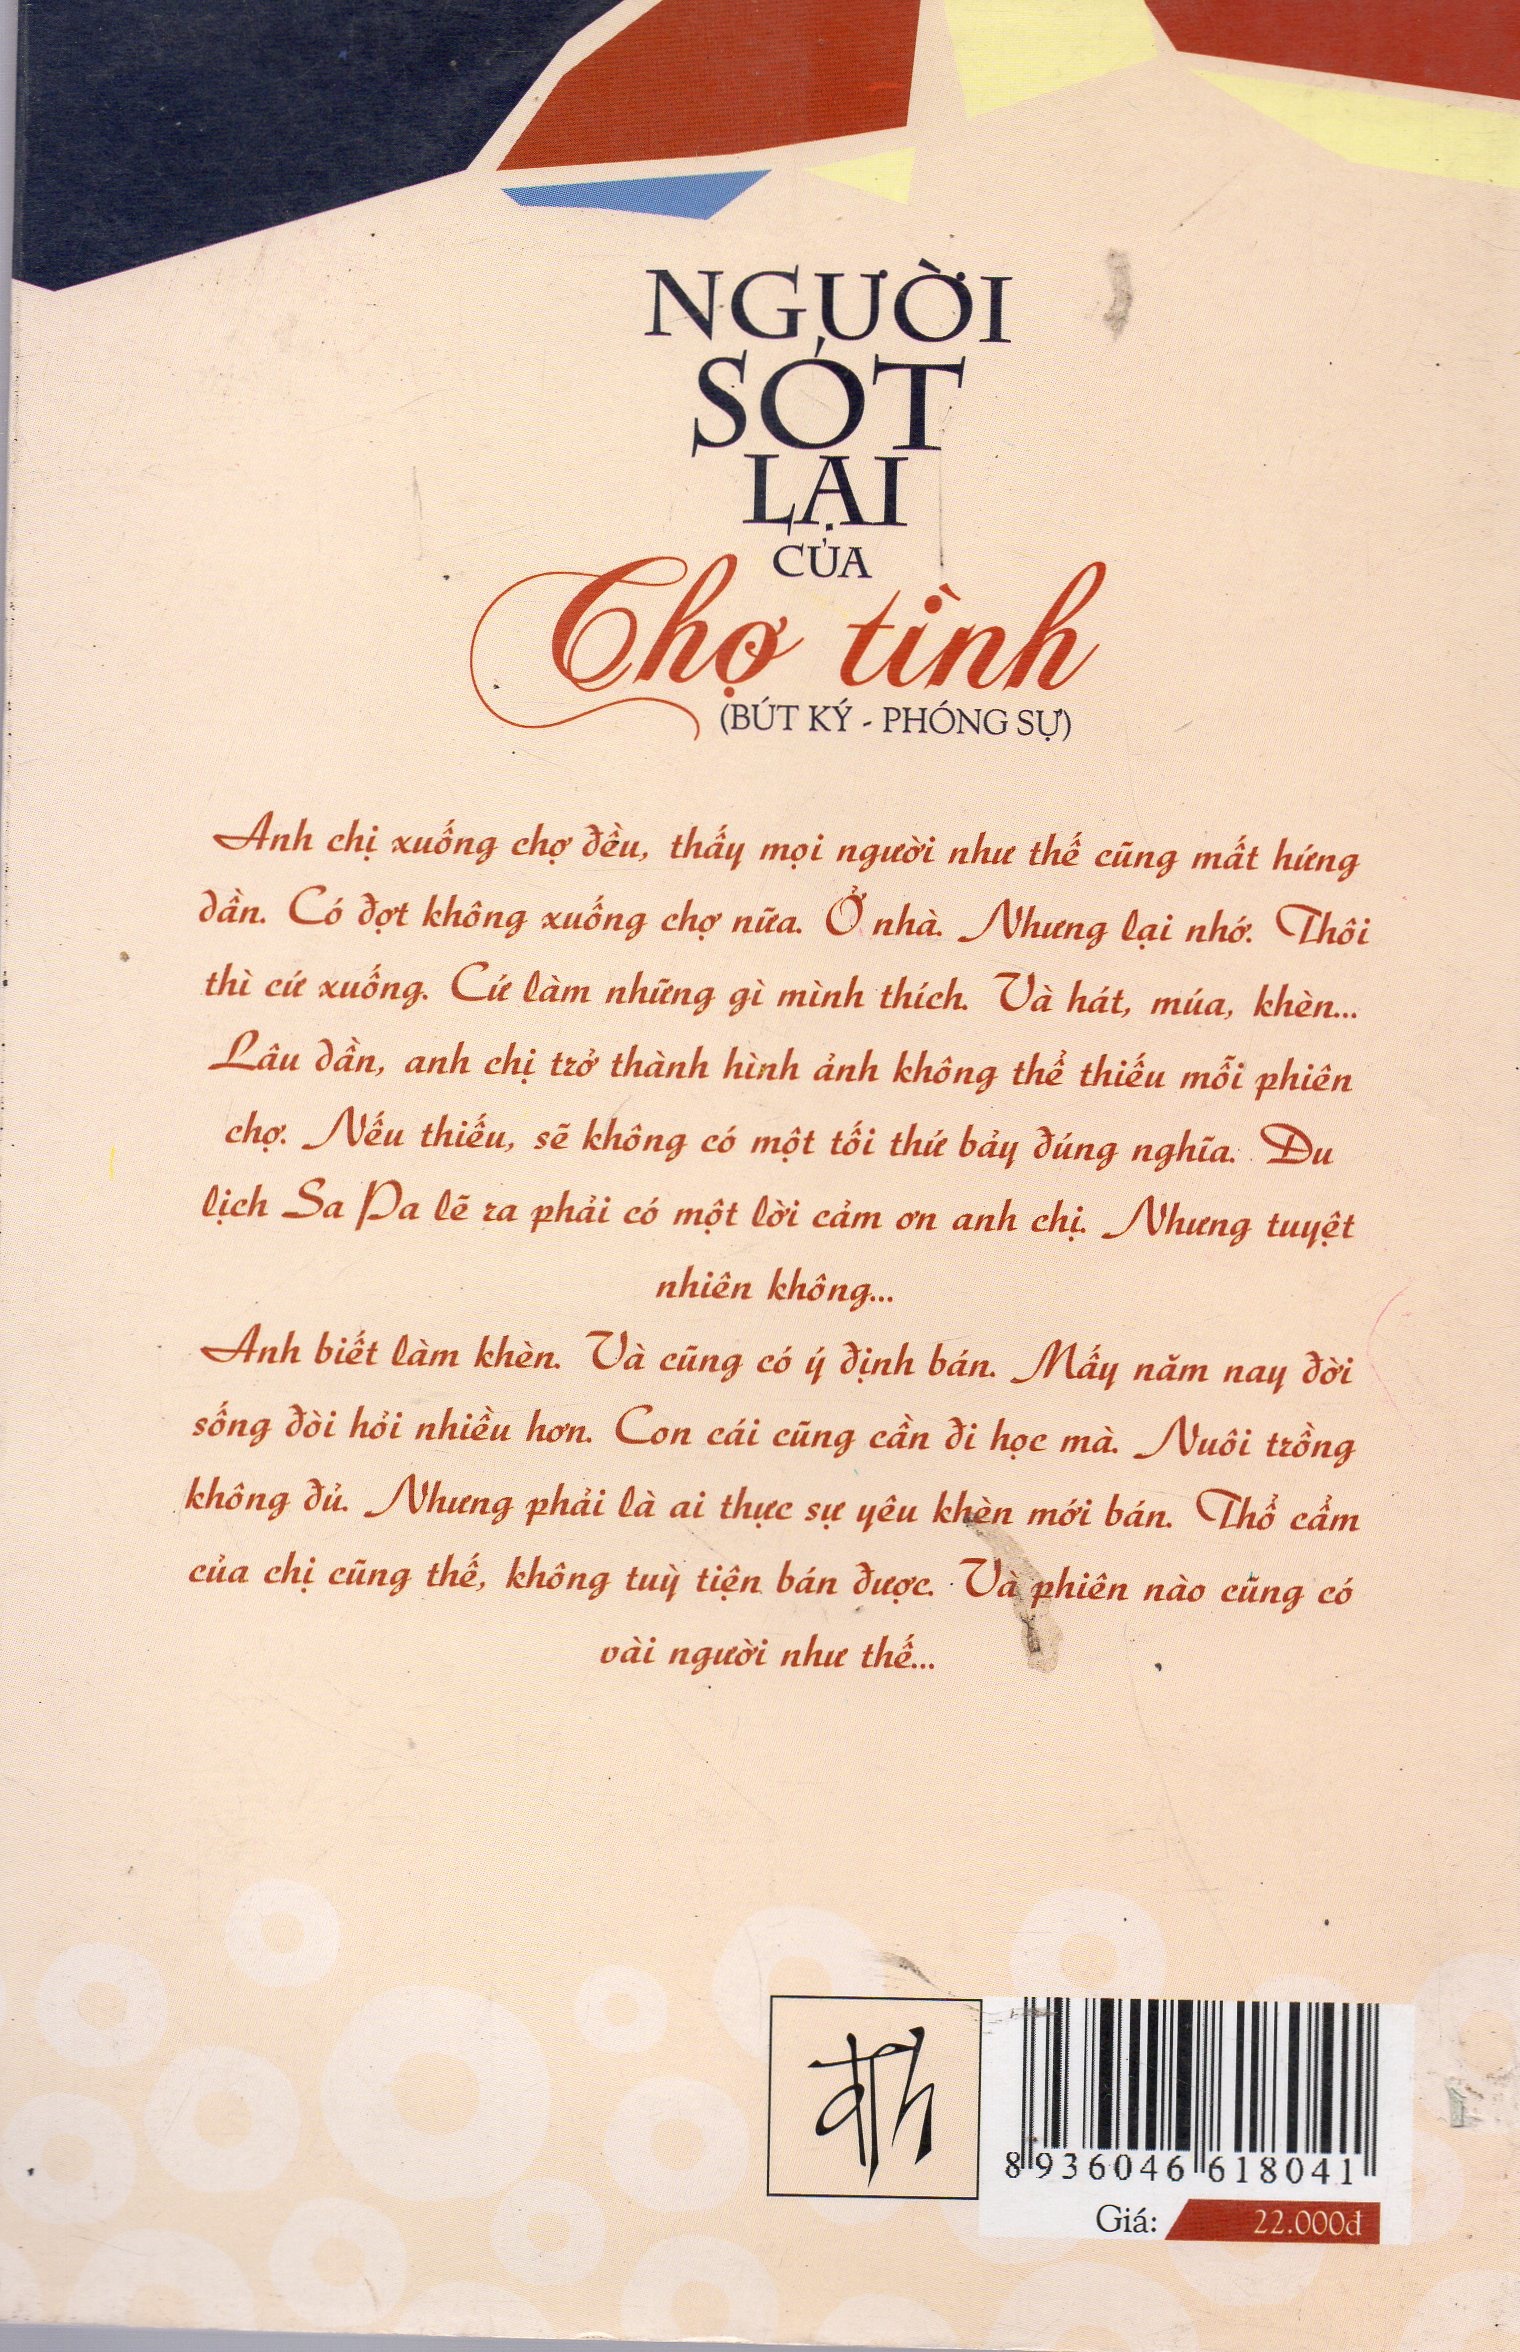 NGƯỜI
SÓT
LẠI
CỦA
Chợ tình
(BÚT KÝ - PHÓNG SỰ)
Anh chị xuống chợ đều, thấy mọi người như thế cũng mất hứng
dần. Có đợt không xuống chợ nữa. Ở nhà. Nhưng lại nhớ. Thôi
thì cứ xuống. Cứ làm những gì mình thích. Và hát, múa, khèn...
Lâu dần, anh chị trở thành hình ảnh không thể thiếu mỗi phiên
chợ. Nếu thiếu, sẽ không có một tối thứ bảy đúng nghĩa. Du
lịch Sa Pa lẽ ra phải có một lời cảm ơn anh chị. Nhưng tuyệt
nhiên không...
Anh biết làm khèn. Và cũng có ý định bán. Mấy năm nay đời
sống đòi hỏi nhiều hơn. Con cái cũng cần đi học mà. Nuôi trồng
không đủ. Nhưng phải là ai thực sự yêu khèn mới bán. Thổ cẩm
của chị cũng thế, không tuỳ tiện bán được. Và phiên nào cũng có
vài người như thế...
8 936046 618041
Giá: 22.000đ